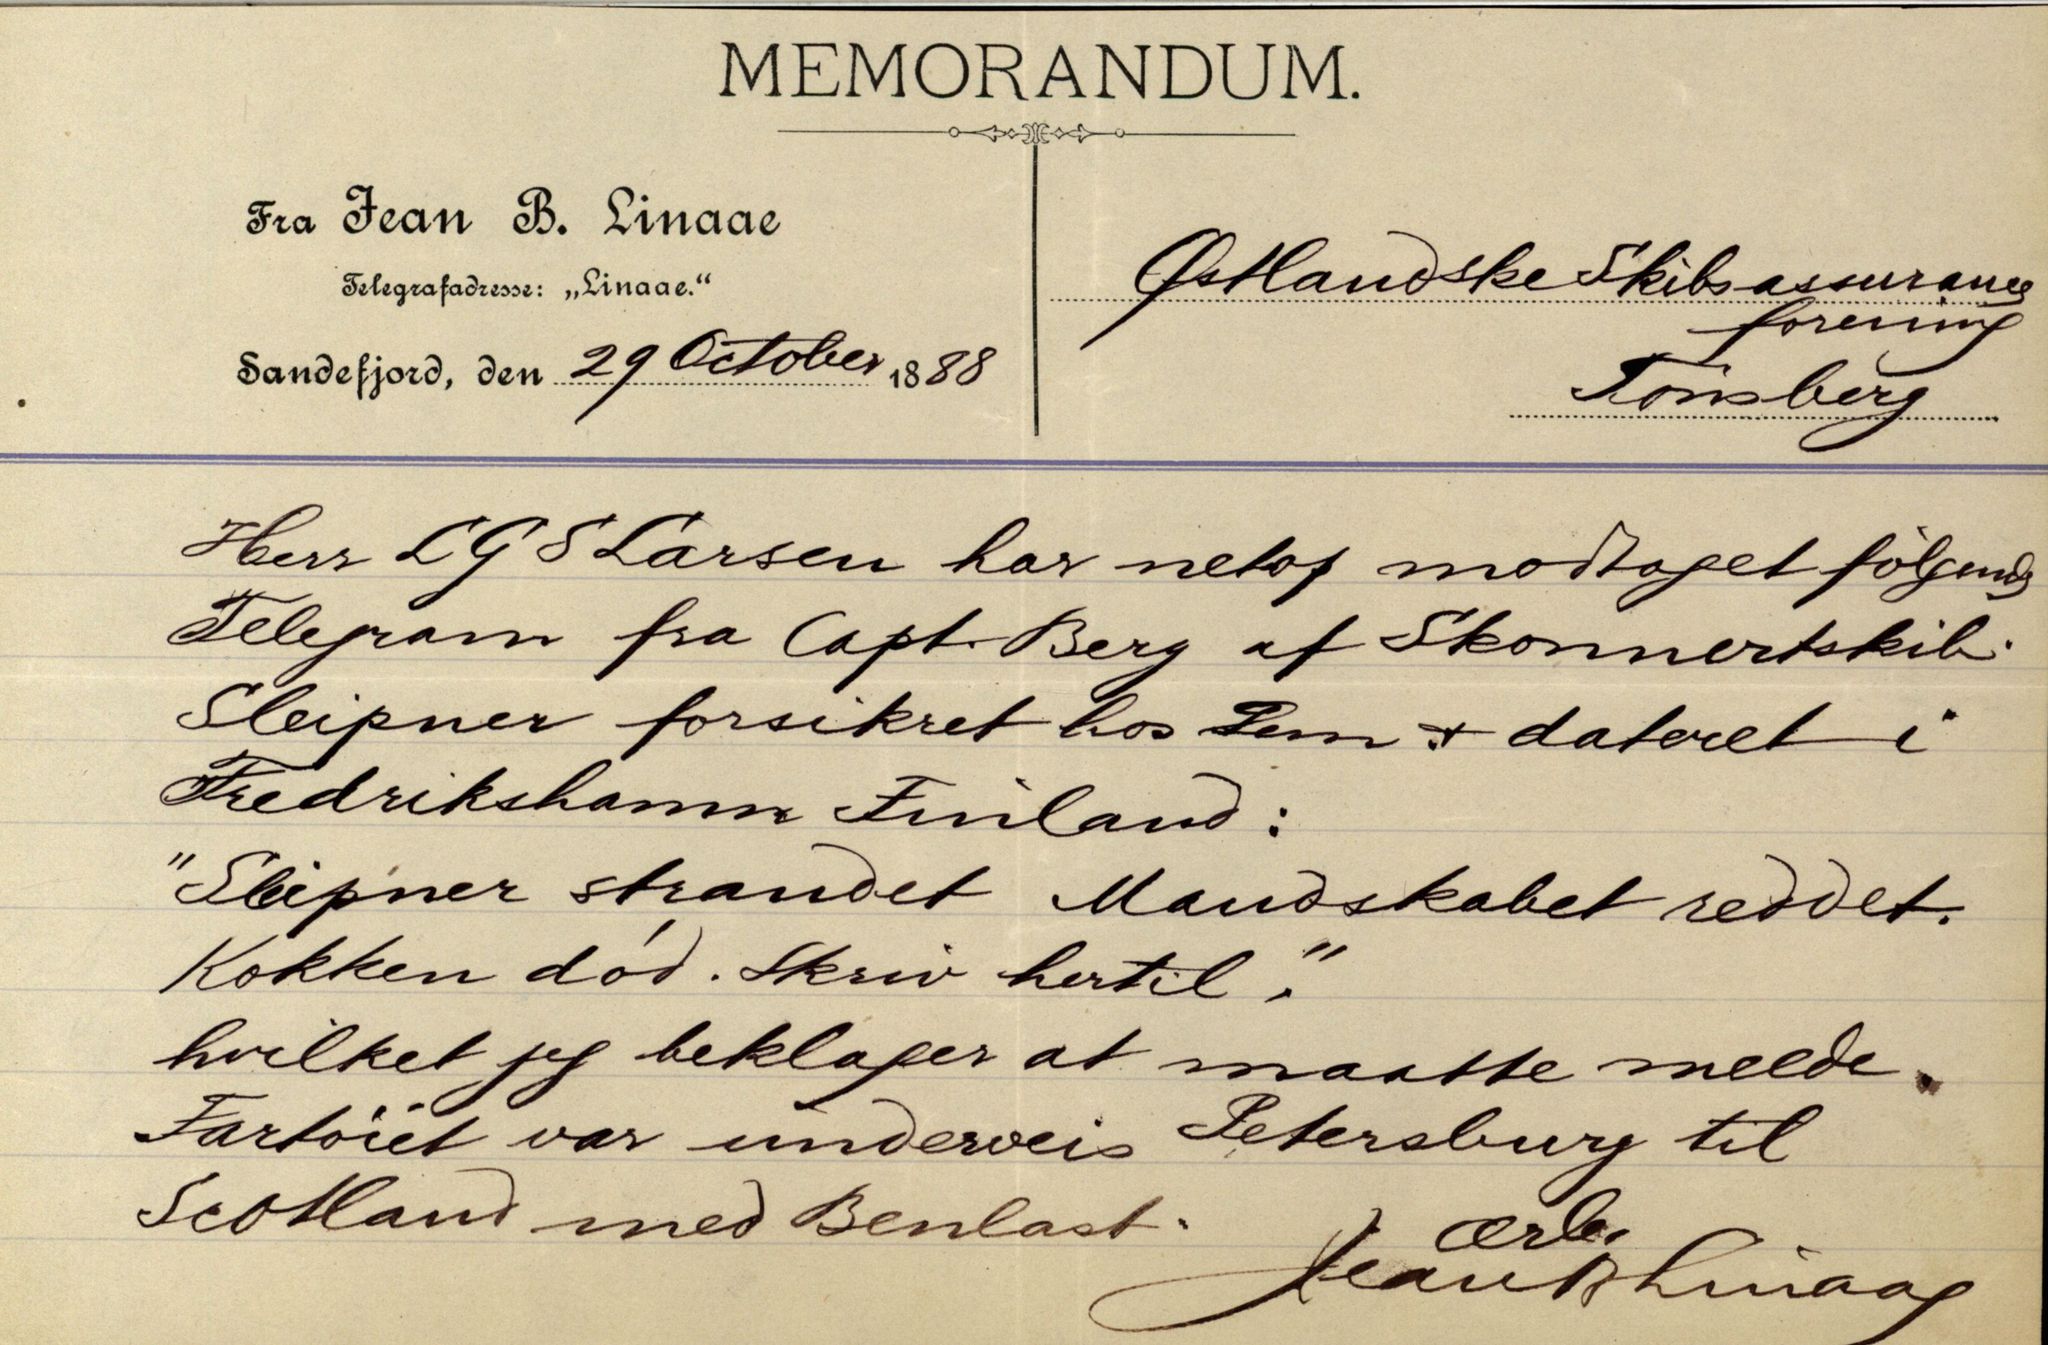 MEMORANDUM.
Fra Jean B. Linaae
Telegrafadresse: „Linaae.“
Sandefjord, den 29 October 1888
Østlandske Skibsassurance
forening
Tönsberg
Herr L G S Larsen har netop modtaget følgende
Telegram fra Capt. Berg af Skonnertskib.
Sleipner forsikret hos Dem & dateret i
Fredrikshamn Finland:
"Sleipner strandet Mandskabet reddet.
Kokken död. Skriv hertil".
hvilket jeg beklager at maatte melde.
Fartöiet var underveis Petersburg til
Scotland med Benlast.
Ærb.
Jean B Linaae